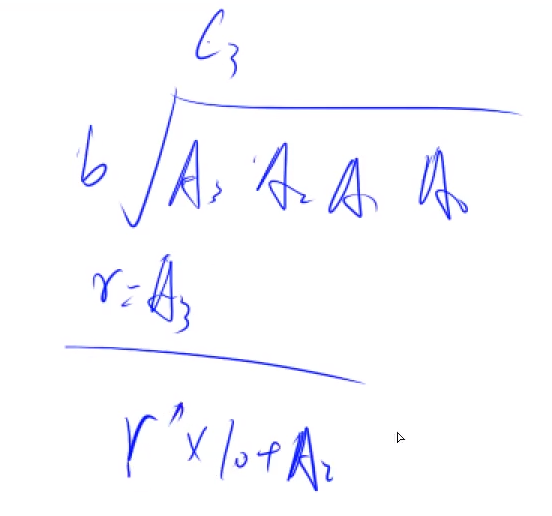 C₃
b √ A₃ A₂ A₁ A₀
r = A₃
r^ × 10 + A₂